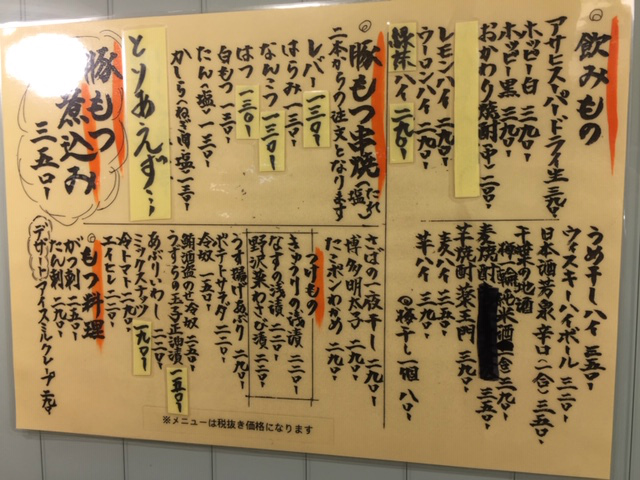 飲みもの
アサヒスーパードライ生 三九〇-
ホッピー白 三九〇-
ホッピー黒 三九〇-
おかわり焼酎(中) 二〇〇-
レモンハイ 二九〇-
ウーロンハイ 二九〇-
緑茶ハイ 二九〇-
うめ干しハイ 三五〇-
ウィスキーハイボール 三二〇-
日本酒芳泉 辛口(一合) 三五〇-
千葉の地酒
梅一輪純米酒(一合) 三九〇-
麦焼酎 三五〇-
芋焼酎 薬王門 三九〇-
麦ハイ 三五〇-
芋ハイ 三九〇-
◎梅干し一個 八〇-
豚もつ串焼(たれ・塩)
二本からの注文となります
レバー 一三〇-
はらみ 一三〇-
なんこつ 一三〇-
はつ 一三〇-
白もつ 一三〇-
たん(塩) 一三〇-
かしら(ねぎ間・塩) 一三〇-
とりあえず…
豚もつ
煮込み
三五〇-
さばの一夜干し 二九〇-
博多明太子 二九〇-
たこポンわかめ 二九〇-
つけもの
きゅうりの浅漬 二二〇-
なすの浅漬 二二〇-
野沢菜わさび漬 二二〇-
うす揚げあぶり 二九〇-
ポテトサラダ 二二〇-
冷奴 一五〇-
鮪酒盗のせ冷奴 二五〇-
うずらの玉子正油漬 一五〇-
あぶりいわし 二二〇-
ミックスナッツ 一九〇-
冷トマト 二九〇-
エイヒレ 二二〇-
もつ料理
がつ刺 二五〇-
たん刺 二九〇-
デザート アイスミルクレープ
※メニューは税抜き価格になります